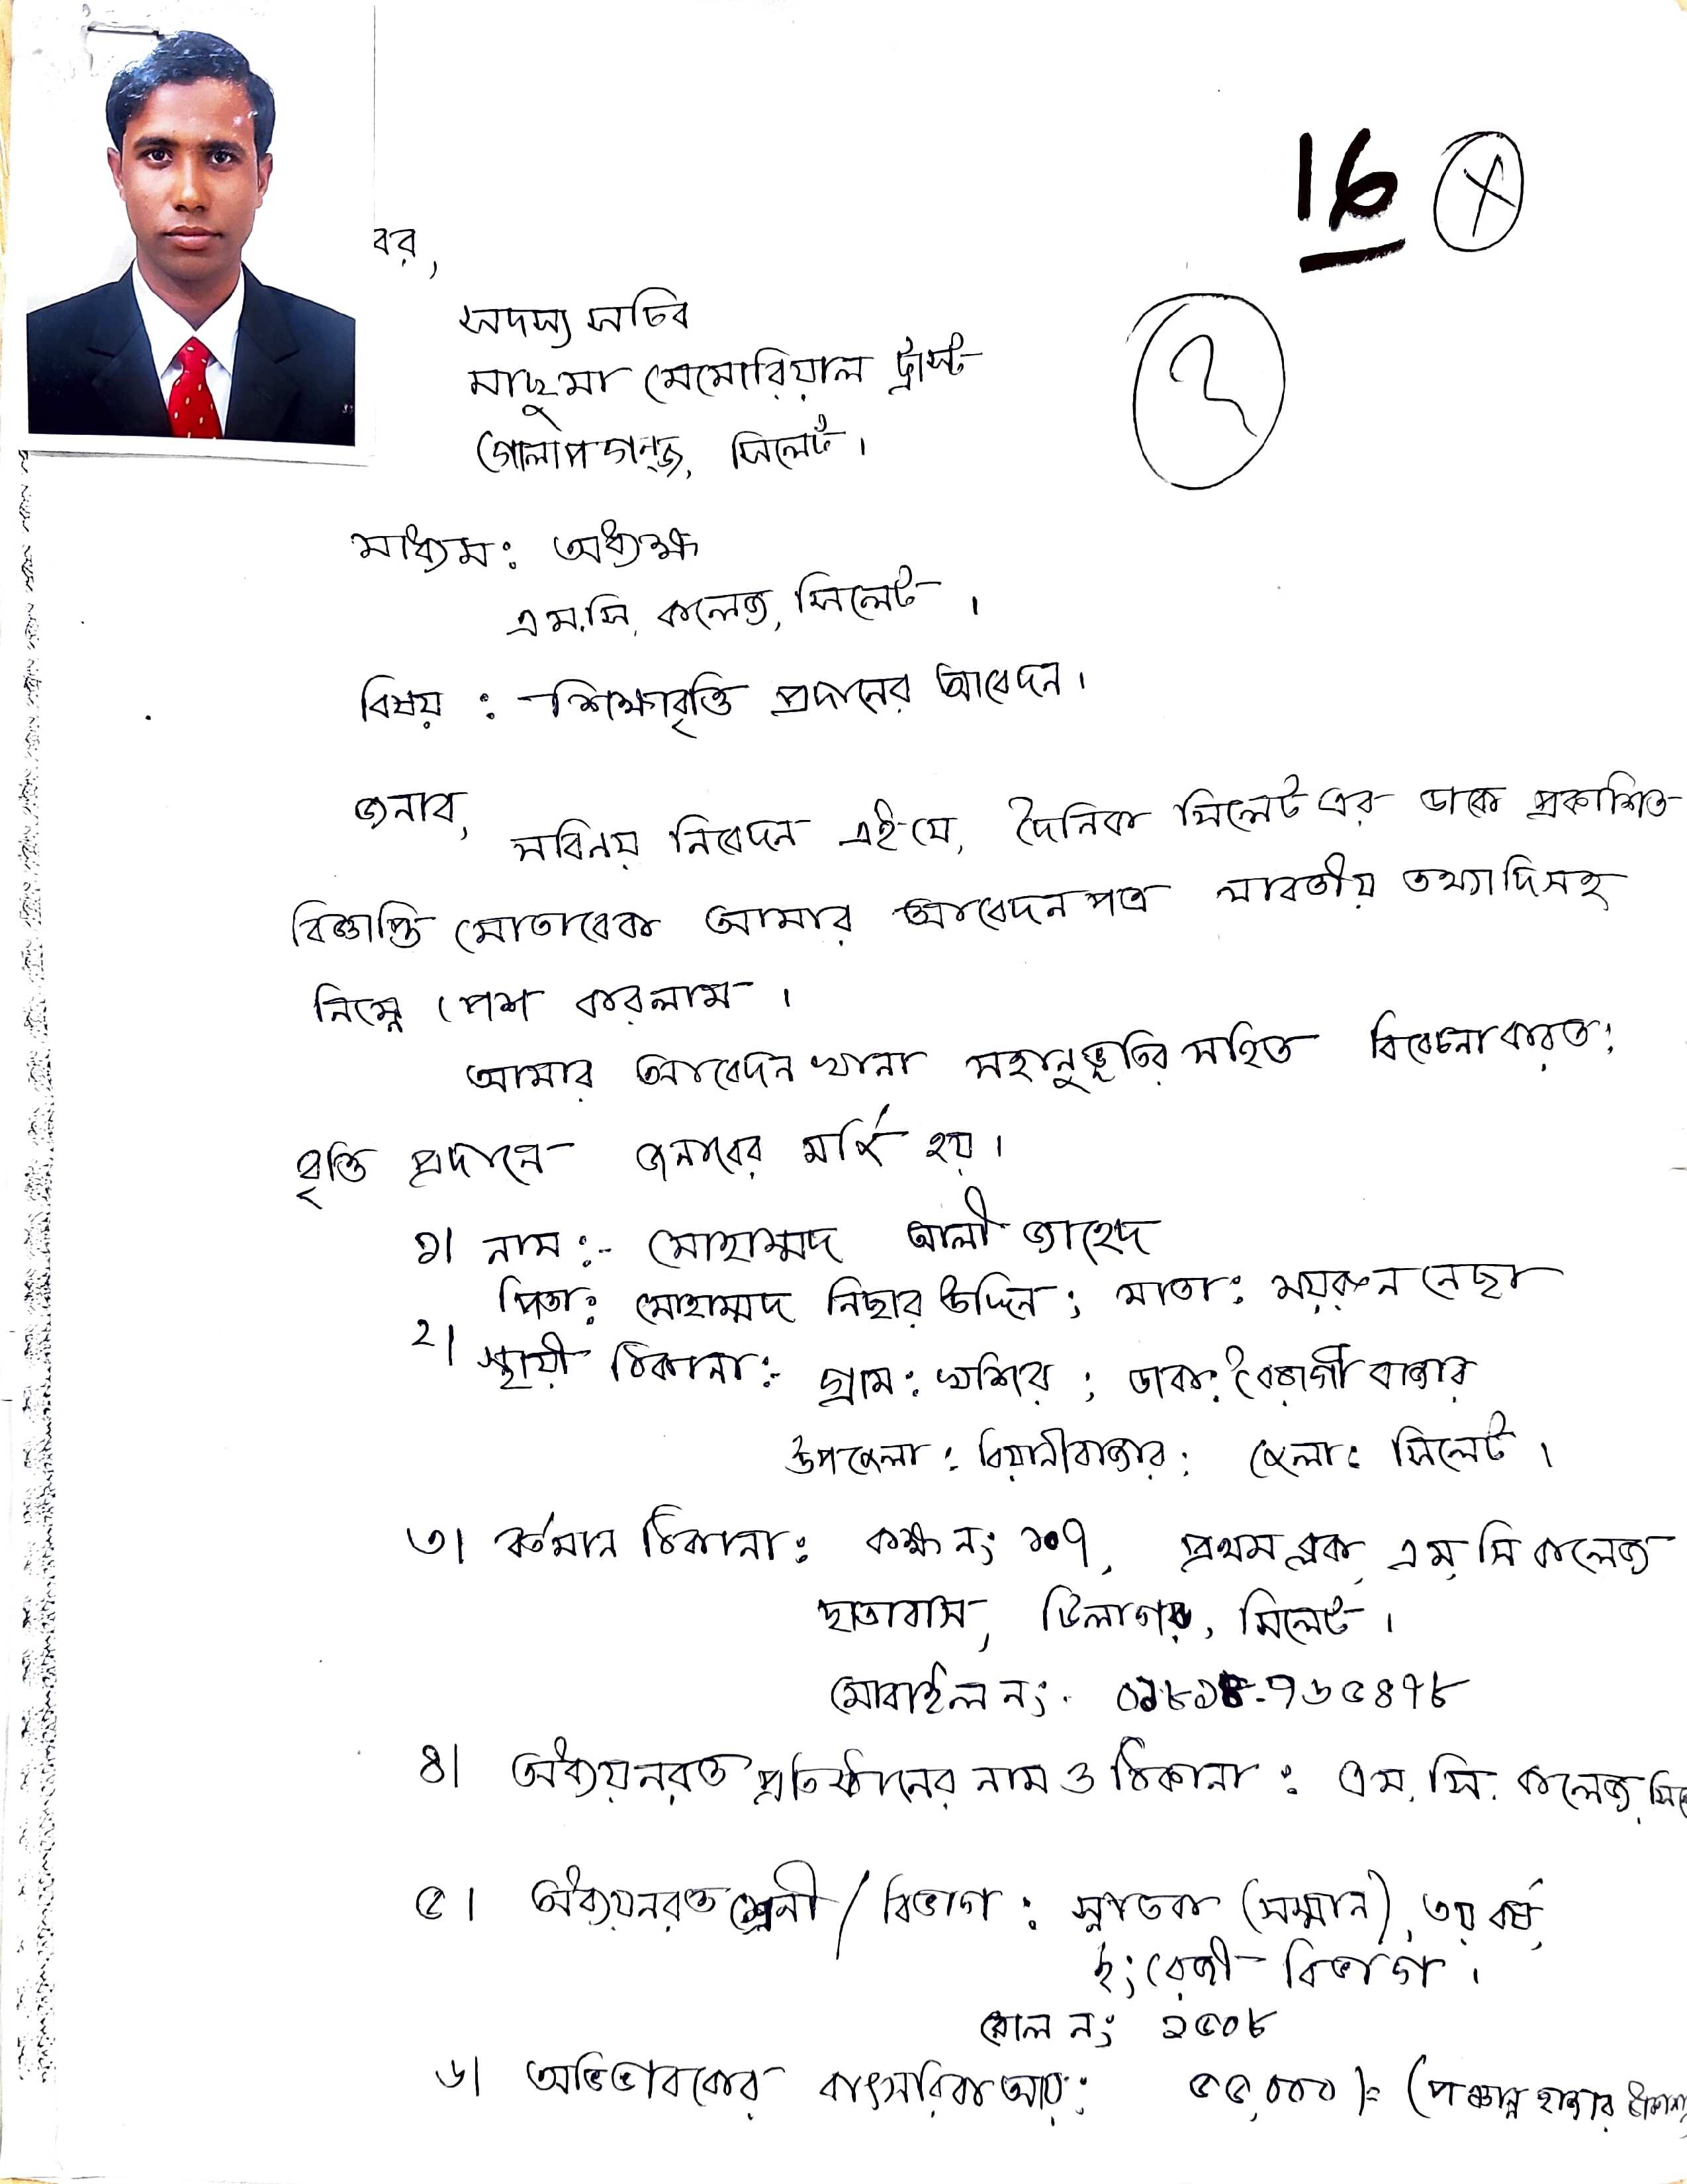 16
বর,
সদস্য সচিব
মাছুমা মেমোরিয়াল ট্রাস্ট
গোলাপগন্জ, সিলেট।
মাধ্যম: অধ্যক্ষ
এম.সি. কলেজ, সিলেট।
বিষয় : শিক্ষাবৃত্তি প্রদানের আবেদন।
জনাব,
সবিনয় নিবেদন এই যে, দৈনিক সিলেট এর ডাকে প্রকাশিত
বিজ্ঞপ্তি মোতাবেক আমার আবেদন পত্র যাবতীয় তথ্যাদিসহ
নিম্নে পেশ করলাম।
আমার আবেদন খানা সহানুভূতির সহিত বিবেচনা করত:
বৃত্তি প্রদানে জনাবের মর্জি হয়।
১। নাম :- মোহাম্মদ আলী জাহেদ
পিতা: মোহাম্মদ নিছার উদ্দিন; মাতা: ময়রুন নেছা
২। স্থায়ী ঠিকানা:- গ্রাম: খশির ; ডাক: বৈরাগী বাজার
উপজেলা : বিয়ানীবাজার; জেলা: সিলেট।
৩। বর্তমান ঠিকানা: কক্ষ নং ১০৭, প্রথম ব্লক, এম, সি কলেজ
ছাত্রাবাস, টিলাগড়, সিলেট।
মোবাইল নং-
৪। অধ্যয়নরত প্রতিষ্ঠানের নাম ও ঠিকানা : এম. সি. কলেজ, সিলে
৫। অধ্যয়নরত শ্রেনী / বিভাগ : স্নাতক (সম্মান), ৩য় বর্ষ,
ইংরেজী বিভাগ।
রোল নং ২৫০৮
৬। অভিভাবকের বাৎসরিক আয়: ৫৫,০০০/= (পঞ্চান্ন হাজার টাকা